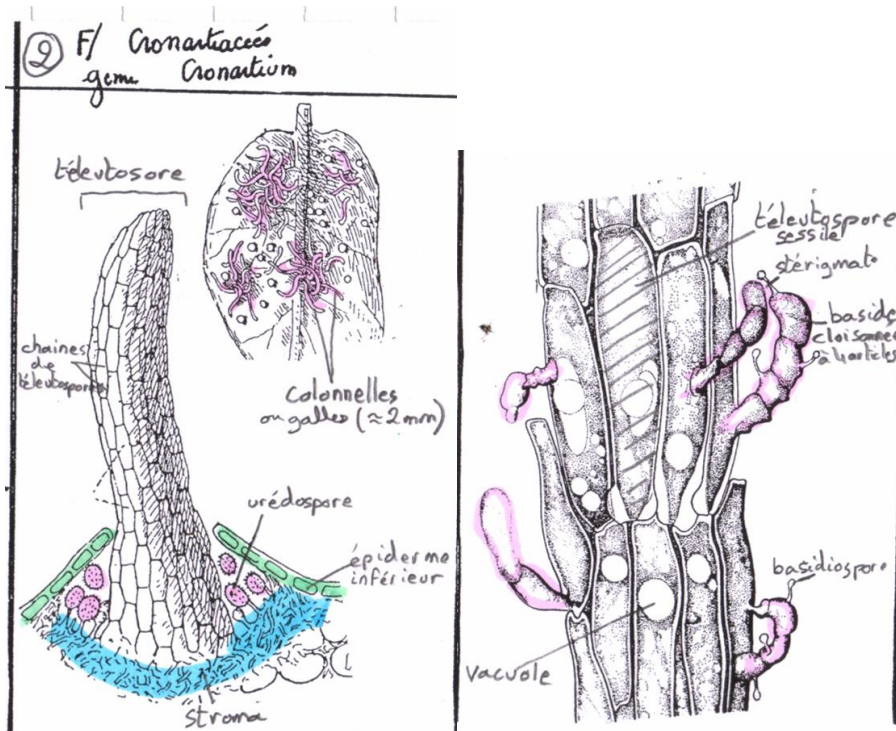 2 F/ Cronartiacées
genre Cronartium
téleutosore
chaines
de
téleutospores
colonnelles
ou galles (≈2mm)
urédospore
épiderme
inférieur
stroma
téleutospore
sessile
stérigmate
baside
cloisonnée
à 4 articles
basidiospore
vacuole